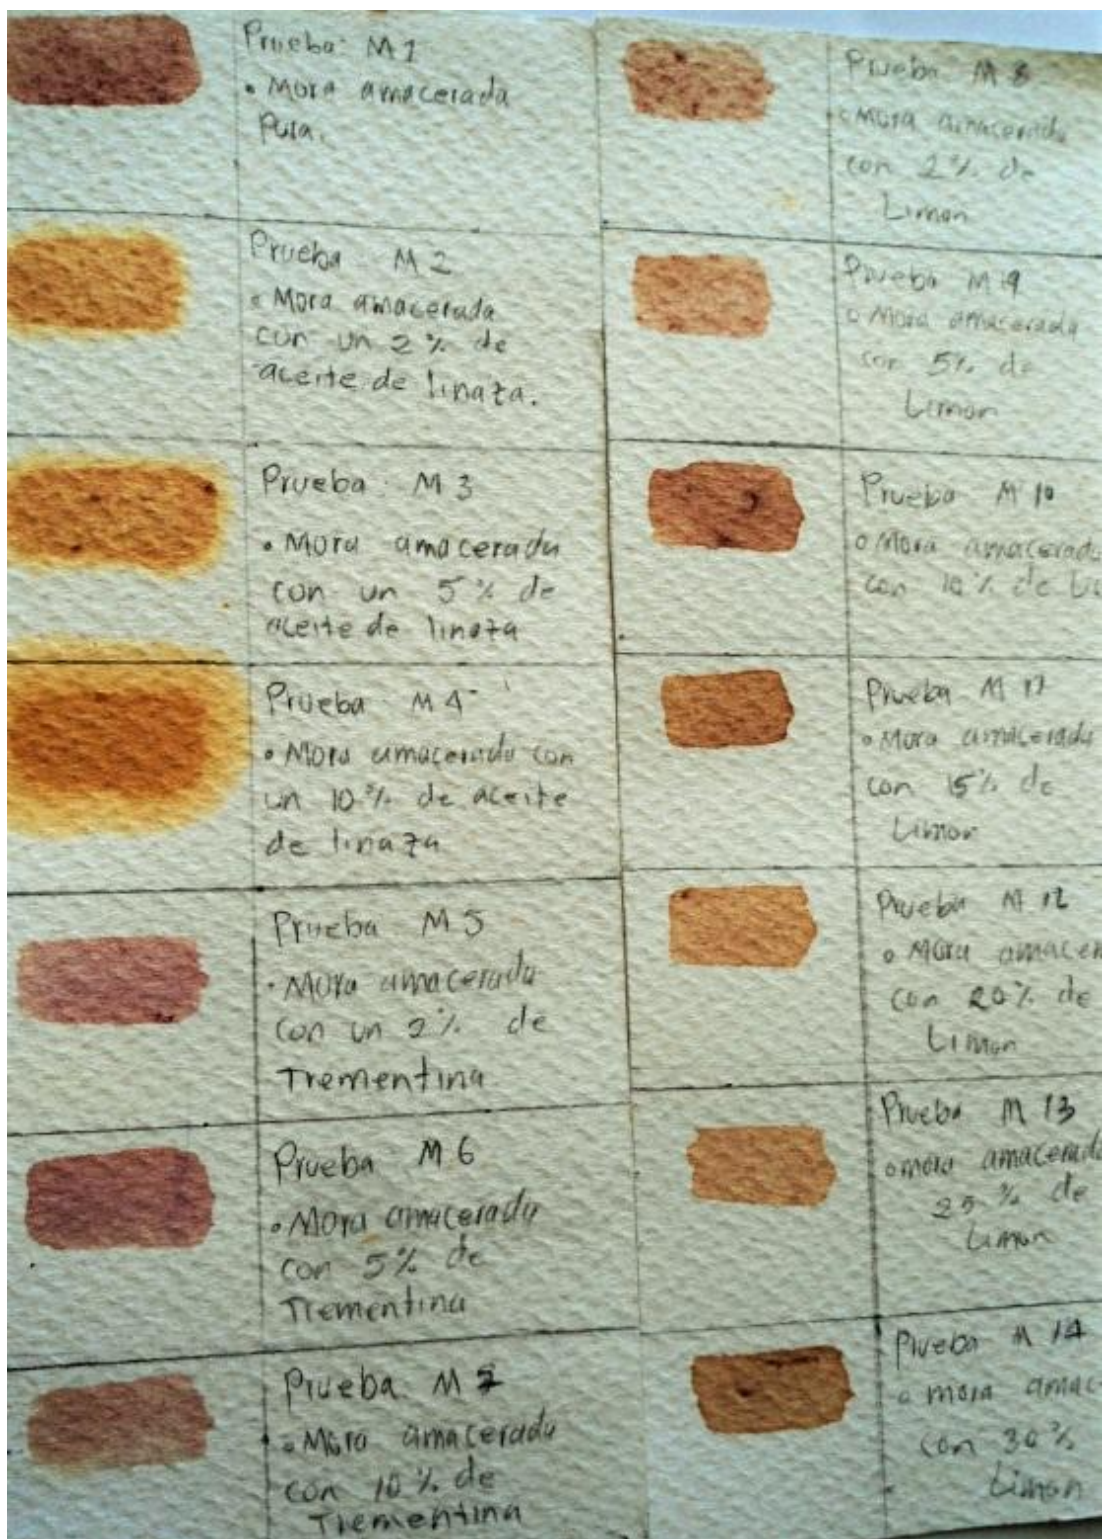 Prueba M1
• Mora amacerada
Pura.
Prueba M2
• Mora amacerada
con un 2% de
aceite de linaza.
Prueba M3
• Mora amacerada
con un 5% de
aceite de linaza
Prueba M4
• Mora amacerada con
un 10% de aceite
de linaza
Prueba M5
• Mora amacerada
con un 2% de
Trementina
Prueba M6
• Mora amacerada
con 5% de
Trementina
Prueba M7
• Mora amacerada
con 10% de
Trementina
Prueba M8
• Mora amacerada
con 2% de
Limon
Prueba M9
• Mora amacerada
con 5% de
Limon
Prueba M10
• Mora amacerada
con 10% de
Prueba M11
• Mora amacerada
con 15% de
Limon
Prueba M12
• Mora amacer
con 20% de
Limon
Prueba M13
• mora amacerada
25% de
Limon
Prueba M14
• mora amac
con 30%
Limon